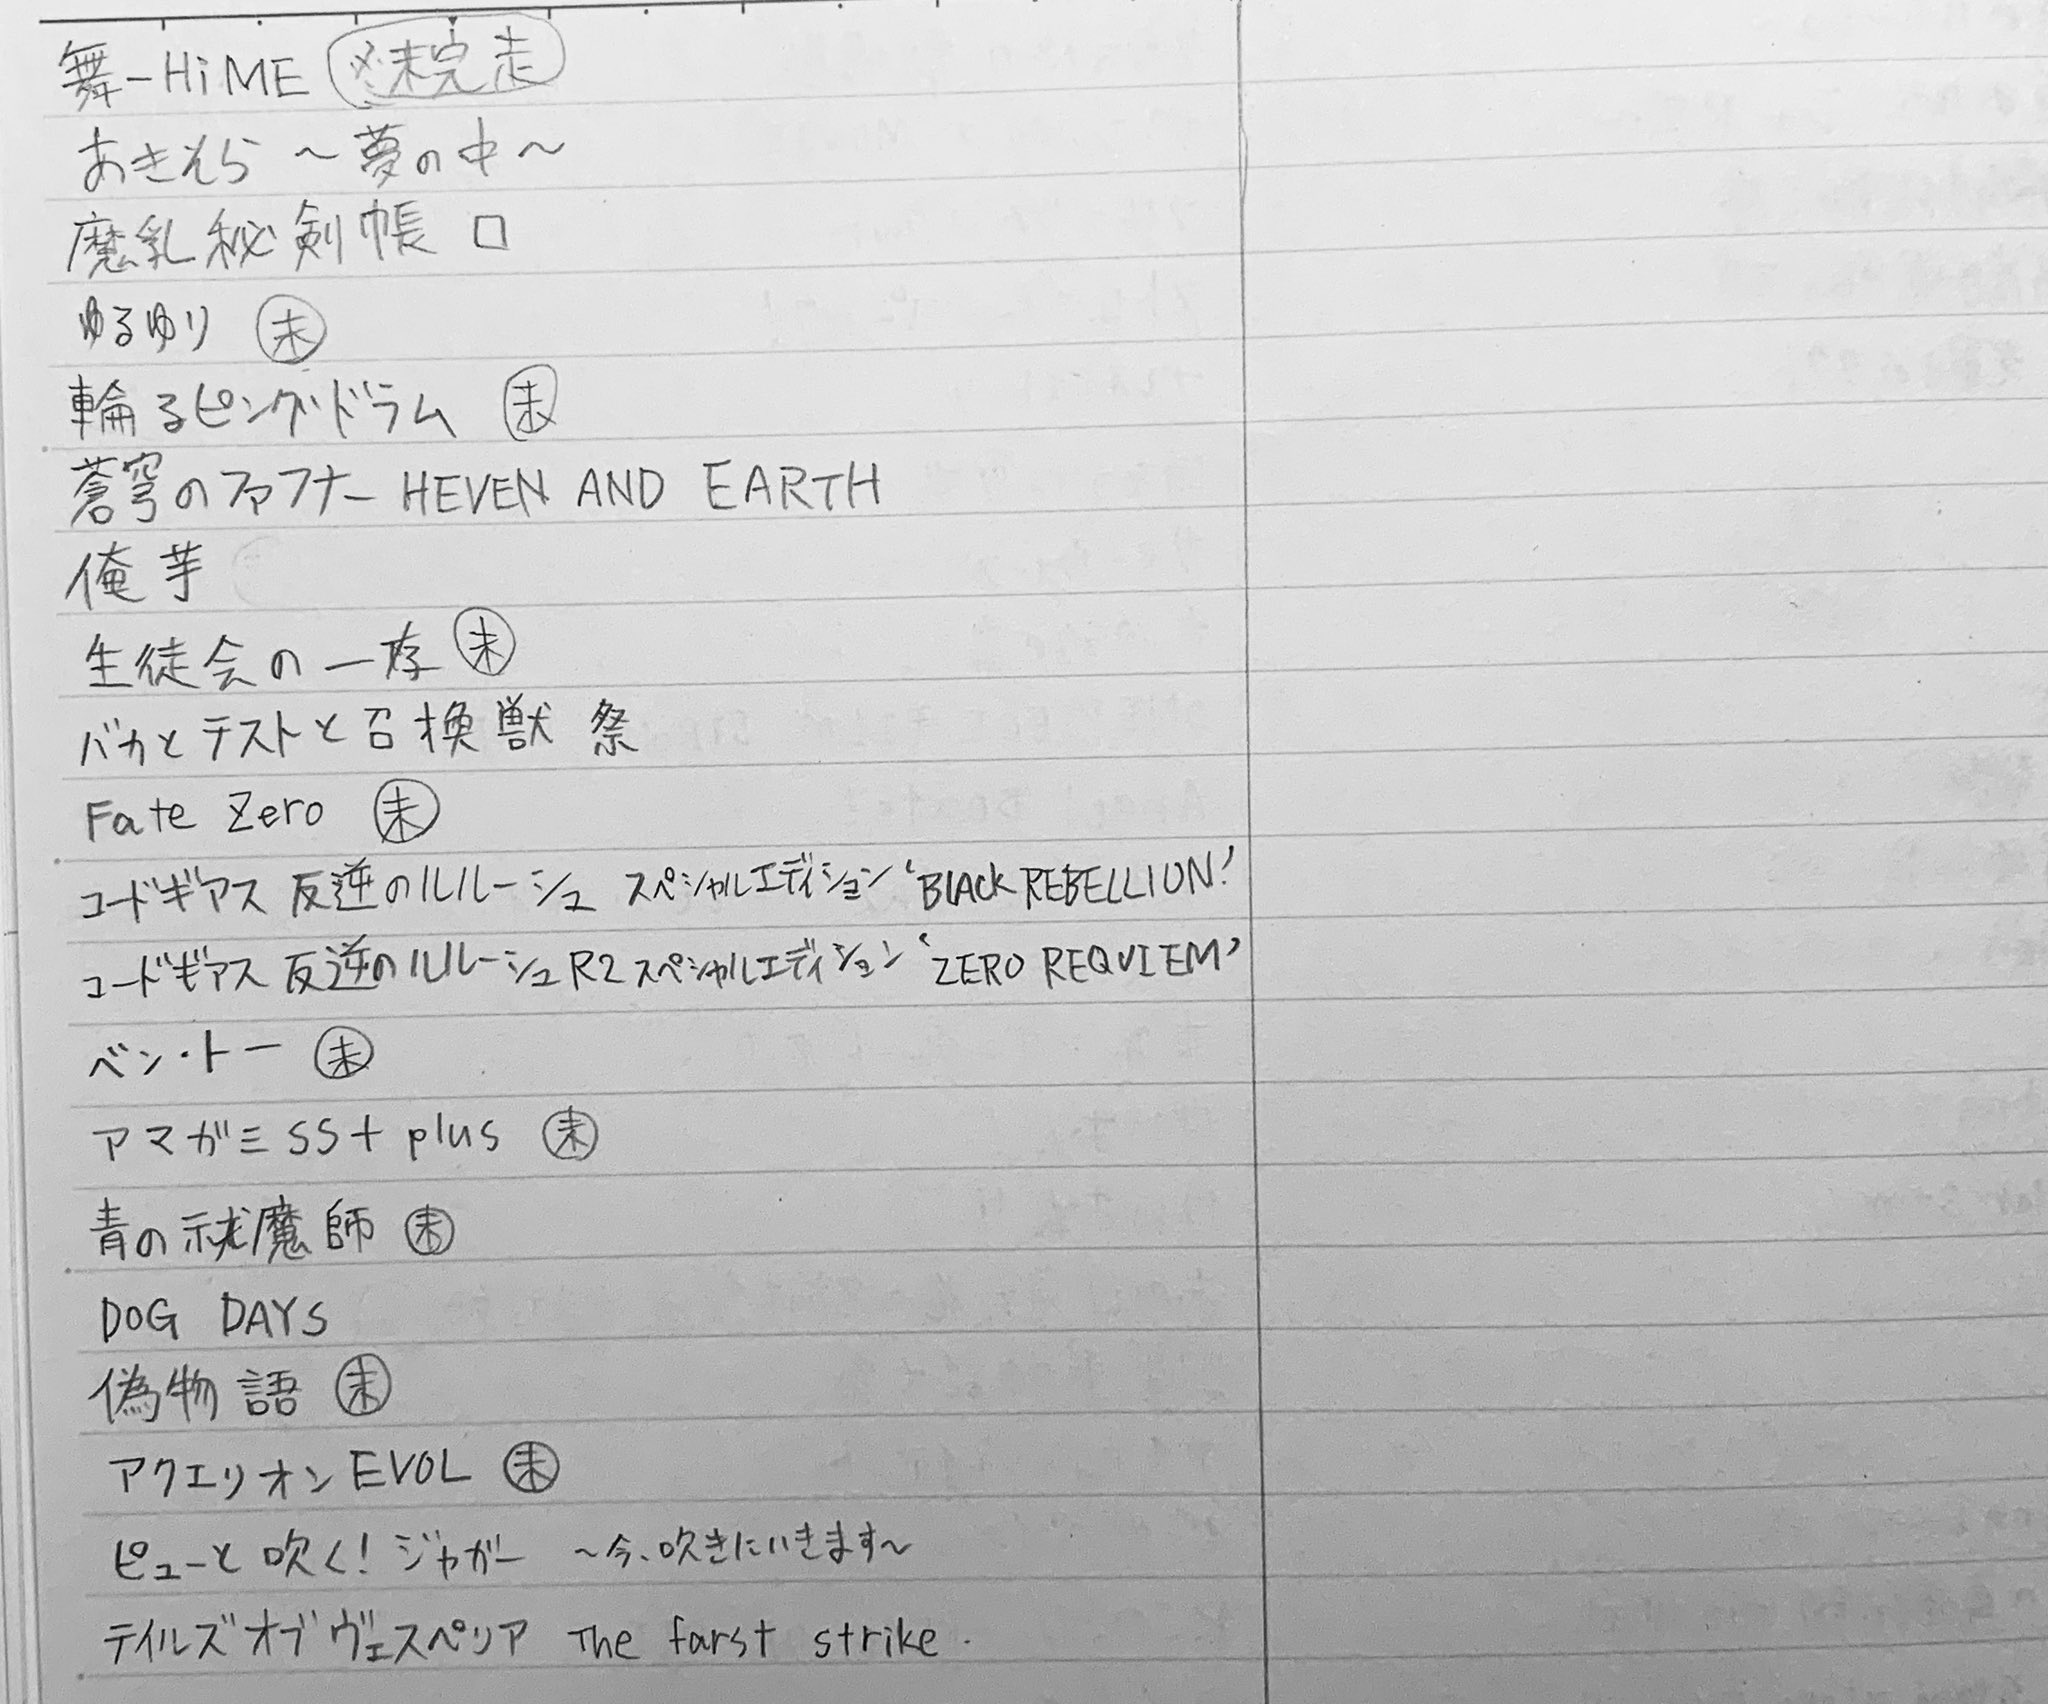 舞-HiME ※未完走
あきそら ～夢の中～
魔乳秘剣帳 □
ゆるゆり 未
輪るピングドラム 未
蒼穹のファフナー HEVEN AND EARTH
俺芋
生徒会の一存 未
バカとテストと召換獣 祭
Fate Zero 未
コードギアス 反逆のルルーシュ スペシャルエディション 'BLACK REBELLION'
コードギアス 反逆のルルーシュR2 スペシャルエディション 'ZERO REQUIEM'
ベン・トー 未
アマガミSS+ plus 未
青の祓魔師 未
DOG DAYS
偽物語 未
アクエリオンEVOL 未
ピューと吹く!ジャガー ～今、吹きにいきます～
テイルズオブヴェスペリア The farst strike.